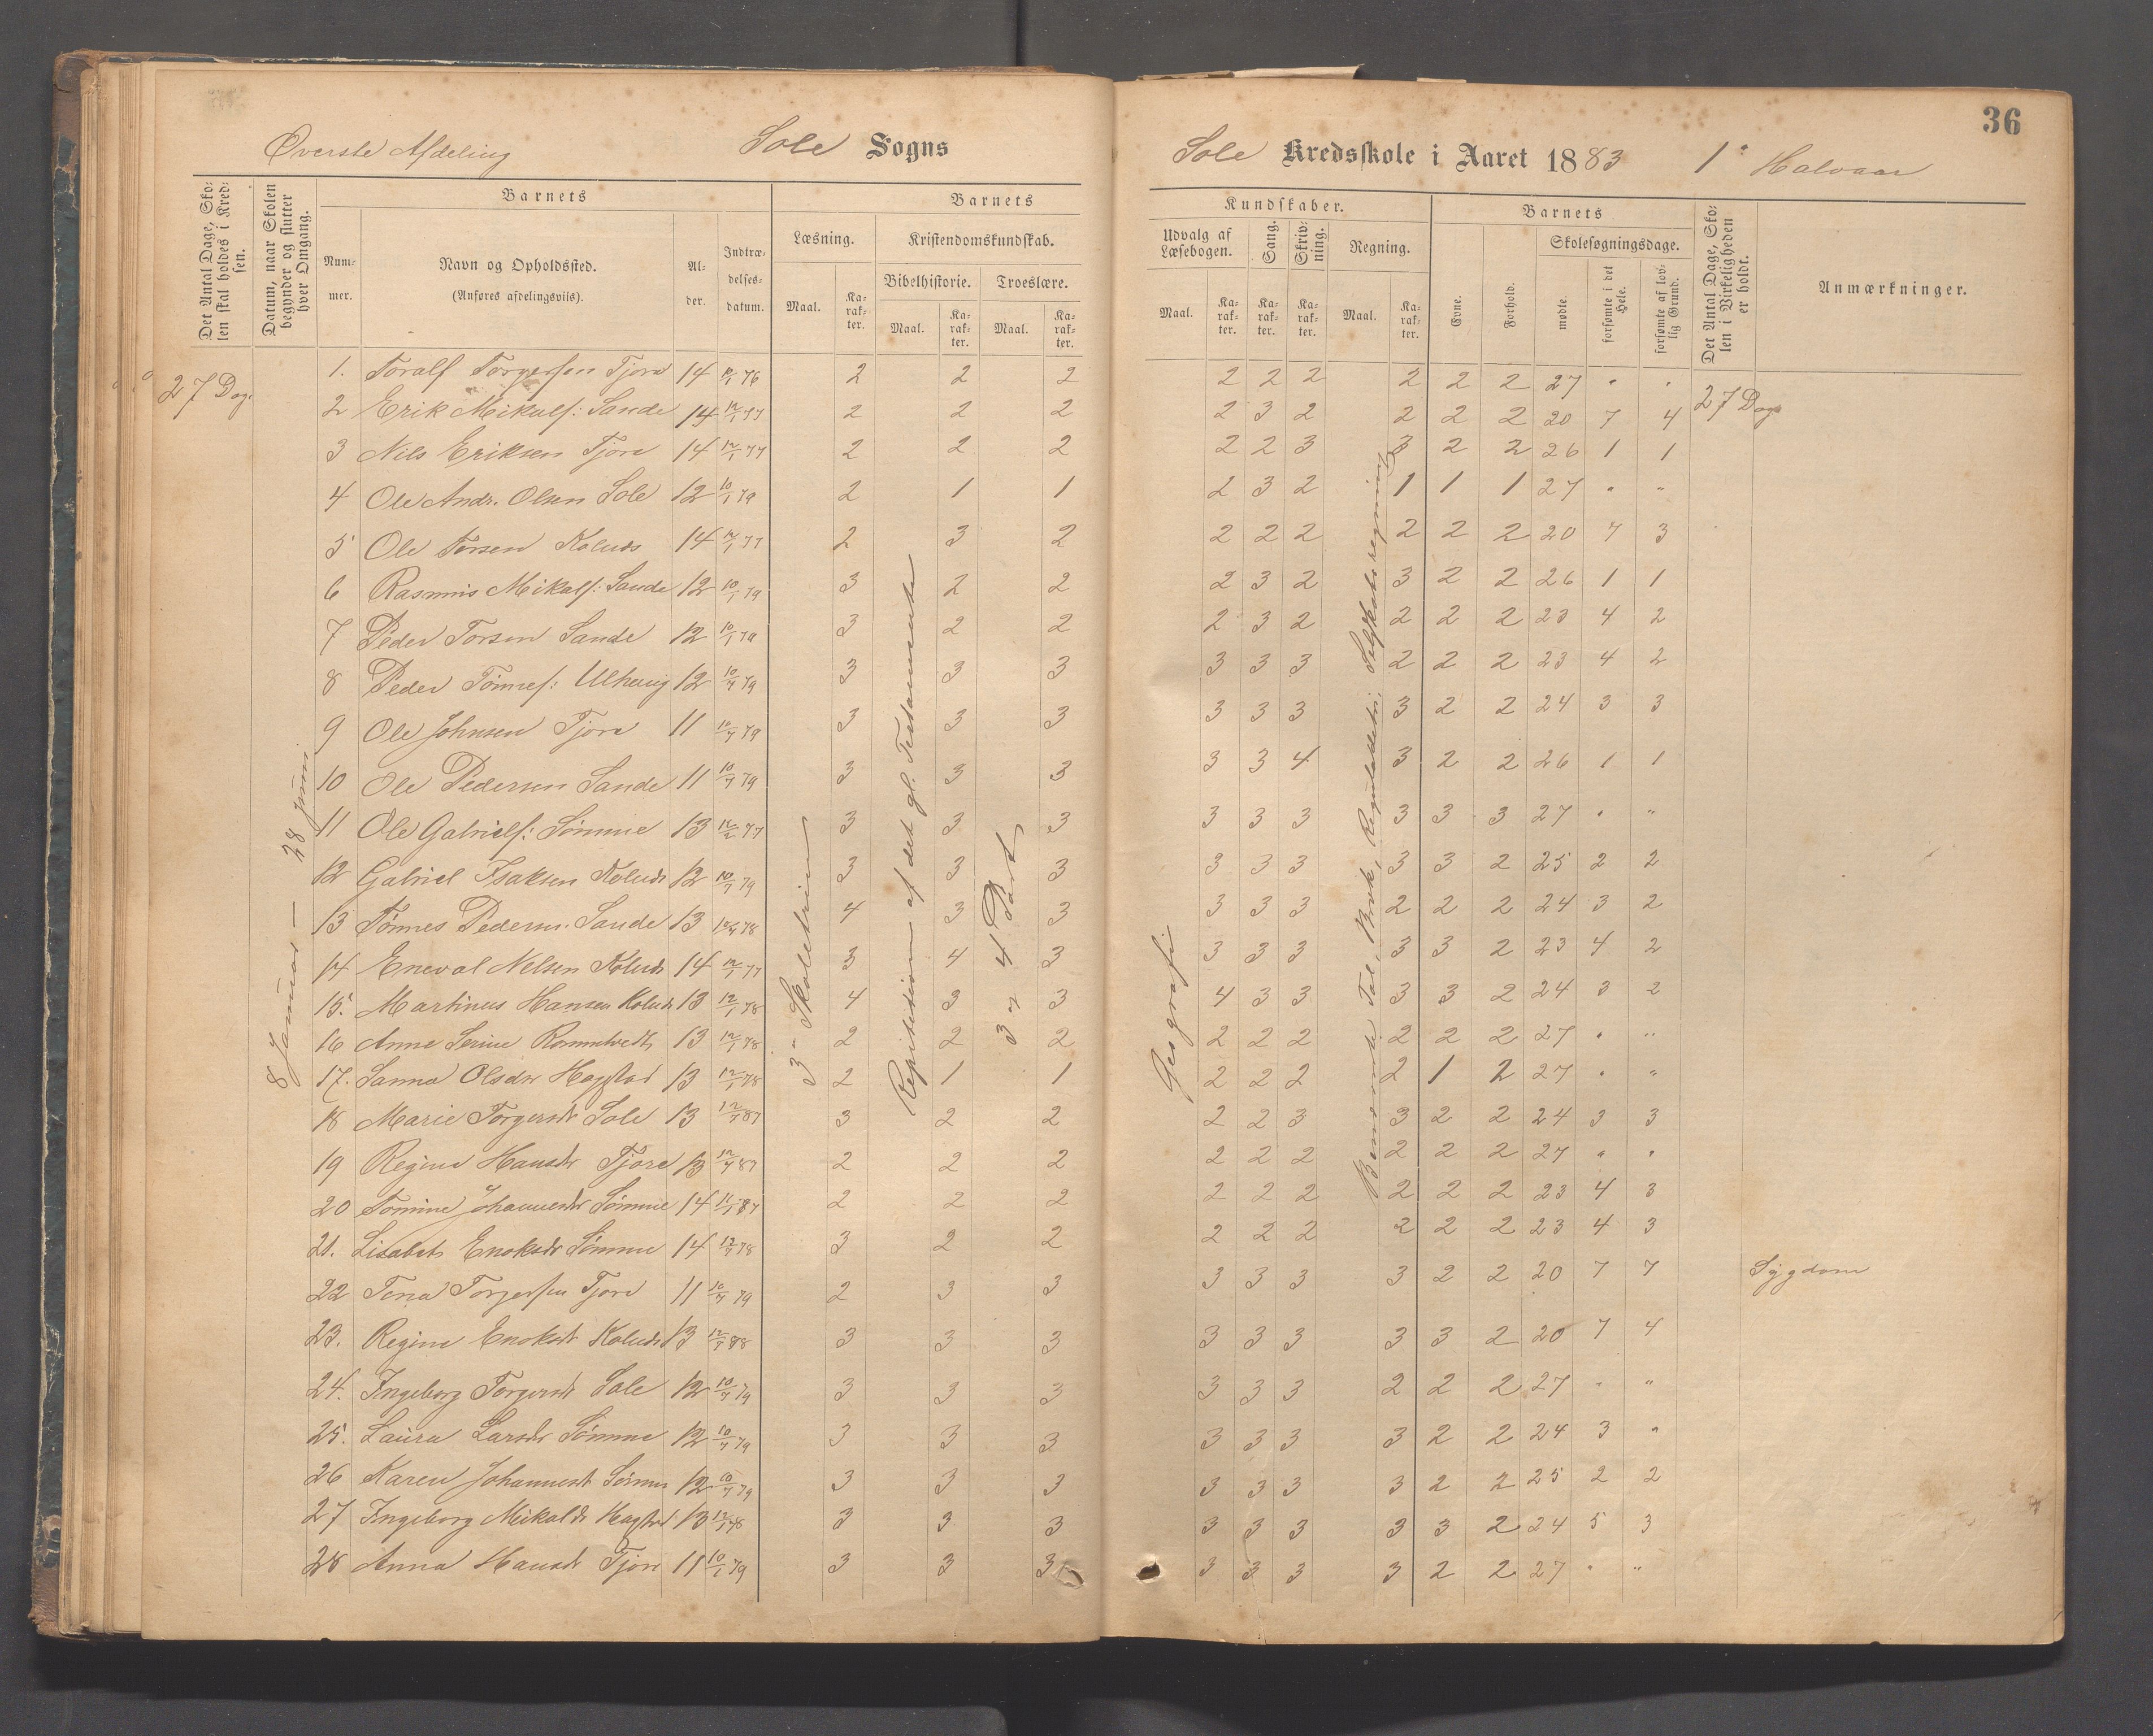 36
Överste Afdeling Sole Sogns
Sole Kredsskole i Aaret 1883 1ᵉ Halvaar
Det Antal Dage, Skolen skal holdes i Kredsen.
Datum, naar Skolen begynder og slutter hver Omgang.
Barnets
Nummer.
Navn og Opholdssted.
(Anføres afdelingsviis).
Alder.
Indtrædelsesdatum.
Barnets
Læsning.
Maal.
Karakter.
Kristendomskundskab.
Bibelhistorie.
Maal.
Karakter.
Troeslære.
Maal.
Karakter.
Kundskaber.
Udvalg af Læsebogen.
Maal.
Karakter.
Sang.
Karakter.
Skrivning.
Karakter.
Regning.
Maal.
Karakter.
Barnets
Evne.
Forhold.
Skolesøgningsdage.
mødte.
forsømte i det Hele.
forsømte af lovlig Grund.
Det Antal Dage, Skolen i Virkeligheden er holdt.
Anmærkninger.
27 Dag.
8 Januar — 28 Juni
3ᵉ Skoletrin
Repitition af det gl. Testamente
3 og 4 Part
Geografi
Benævnte Tal, Brøk, Reguladetri, Selskabsregning
27 Dage
1. Toralf Torgersen Tjora 14 76 2 2 2 2 2 2 2 2 2 27 " "
2 Erik Mikals: Sande 14 12/1 77 2 2 2 2 3 2 2 2 2 20 7 4
3 Nils Eriksen Tjora 14 12/1 77 2 2 2 2 2 3 3 2 2 26 1 1
4 Ole Andr. Olsen Sole 12 10/1 79 2 1 1 2 3 2 1 1 1 27 " "
5 Ole Torsen Kolnes 14 12/1 77 2 3 2 2 2 2 2 2 2 20 7 3
6 Rasmus Mikals: Sande 12 10/1 79 3 2 2 2 3 2 3 2 2 26 1 1
7 Peder Torsen Sande 12 10/1 79 3 2 2 2 3 2 2 2 2 23 4 2
8 Peder Tønnes: Ulhaug 12 10/7 79 3 3 3 3 3 3 2 2 2 23 4 2
9 Ole Johnsen Tjora 11 10/7 79 3 3 3 3 3 3 3 2 2 24 3 3
10 Ole Pedersen Sande 11 10/7 79 3 3 3 3 3 4 3 2 2 26 1 1
11 Ole Gabriels: Sømme 13 12/2 77 3 3 3 3 3 3 3 3 3 27 " "
12 Gabriel Isaksen Kolnes 12 10/7 79 3 3 3 3 3 3 3 3 2 25 2 2
13 Tønnes Pedersen Sande 13 78 4 3 3 3 3 3 2 2 2 24 3 2
14 Eneval Nelsen Kolnes 14 12/1 77 3 4 3 3 3 3 3 3 2 23 4 2
15. Martinus Hansen Kolnes 13 12/1 78 4 3 3 4 3 3 3 3 2 24 3 2
16 Anne Serine Rommetvedt 13 12/1 78 2 2 2 2 2 2 2 2 2 27 " "
17. Sanna Olsdtr Hagstad 13 12/1 78 2 1 1 2 2 2 2 1 2 27 " "
18 Marie Torgersdt Sole 13 12/7 87 3 2 2 2 2 3 3 2 2 24 3 3
19 Regine Hansdtr Tjora 13 12/7 87 2 2 2 2 2 2 2 2 2 27 " "
20 Tomine Johannesdtr Sømme 14 11/1 87 2 2 2 2 2 2 2 2 2 23 4 3
21. Lisabet Enoksdr Sømme 14 12/7 78 3 2 2 2 2 2 2 2 2 23 4 3
22 Tena Torgersen Tjora 11 10/7 79 2 3 3 3 3 3 3 2 2 20 7 7 Sygdom
23. Regine Enoksdt Kolnes 13 12/7 88 3 3 3 3 3 3 3 3 2 20 7 4
24. Ingeborg Torgersdt Sole 12 10/7 79 3 3 3 3 3 3 2 2 2 27 " "
25. Laura Larsdr Sømme 12 10/7 79 3 3 3 3 3 3 3 2 2 24 3 "
26 Karen Johannesdt Sømme 12 10/7 79 3 3 3 3 3 3 3 2 2 25 2 2
27 Ingeborg Mikalsdr Hagstad 13 12/1 78 3 3 3 3 3 3 3 3 2 24 5 3
28 Anna Hansdt Tjora 11 10/1 79 3 3 3 3 3 3 3 2 2 27 " "